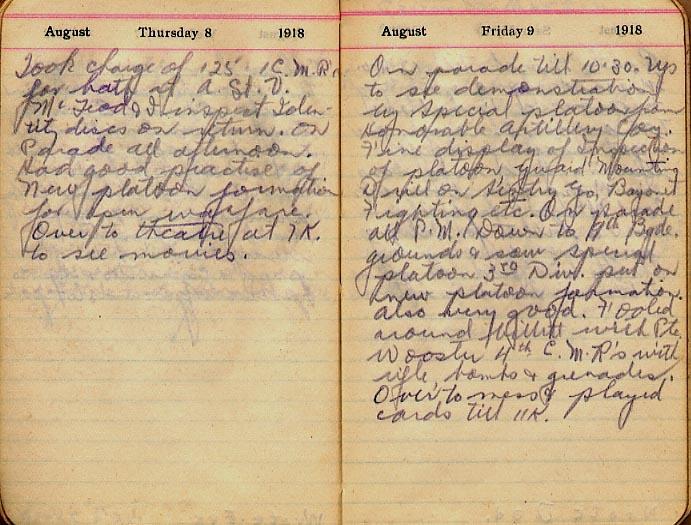 August Thursday 8 1918
Took charge of 125 1 C.M.R's
for bath at A. St. V.
McLeod & I inspect Iden-
tity discs on return. On
Parade all afternoon.
Had good practise of
New platoon formation
for open warfare.
Over to theatre at 7 K.
to see movies.
August Friday 9 1918
On parade till 10.30. Up
to see demonstration
by Special platoon from
Honorable Artillery Coy.
Fine display of Inspection
of platoon Guard Mounting
Drill on Sentry Go, Bayonet
Fighting etc. On parade
all P.M. Down to Bgde.
grounds & saw special
platoon 3rd Div. put on
new platoon formation.
also very good. Fooled
around with Pte
Wooster 4th C.M.R's with
rifle, bombs & grenades.
Over to mess & played
cards till 11K.